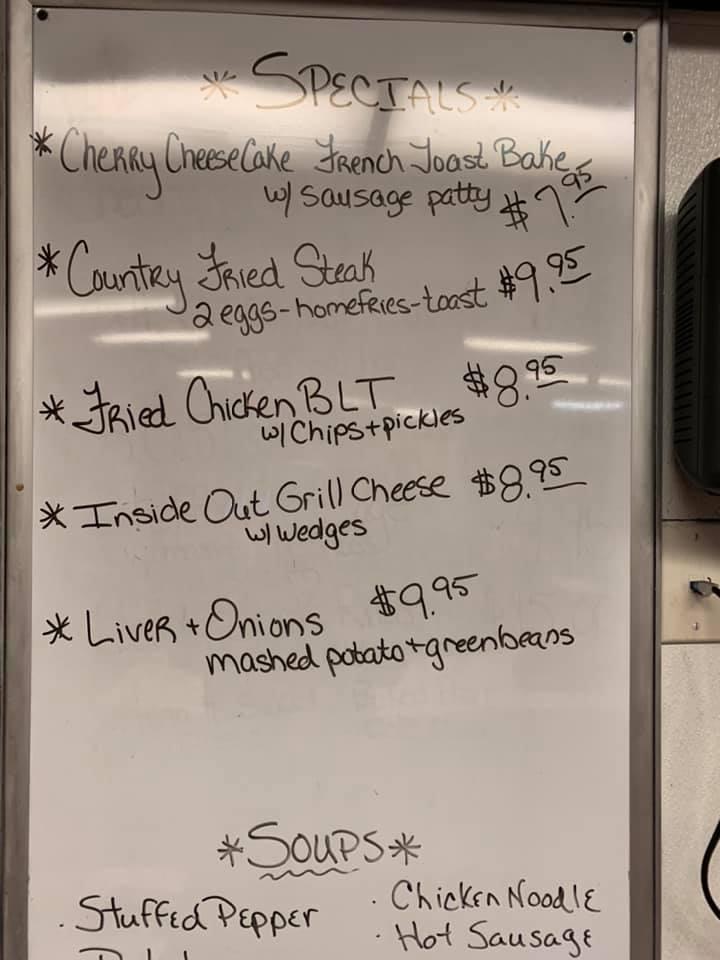 * SPECIALS *
* CHERRY CHEESECAKE FRENCH TOAST BAKE
w/ sausage patty $7.95
* COUNTRY FRIED STEAK
2 eggs-homefries-toast $9.95
* FRIED CHICKEN BLT $8.95
w/ Chips + pickles
* INSIDE OUT GRILL CHEESE $8.95
w/ wedges
* LIVER + ONIONS $9.95
mashed potato + greenbeans
* SOUPS *
. STUFFED PEPPER
. CHICKEN NOODLE
. HOT SAUSAGE